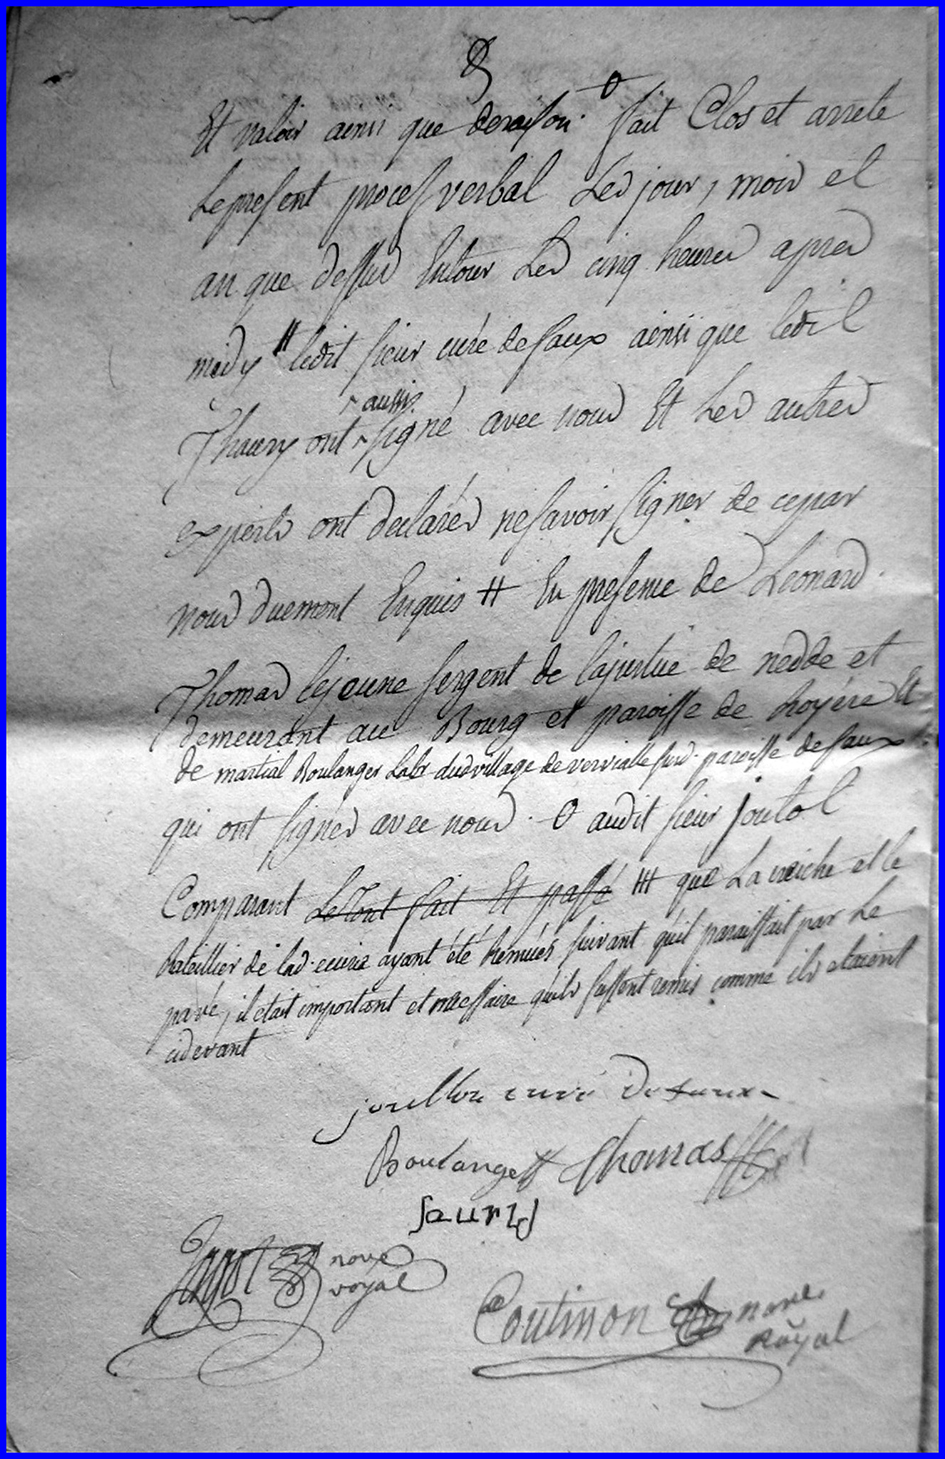 8
Et valoir ainsi que deraison. O fait Clos et arrete
Le present proces verbal Les jour, mois et
an que dessus Entour Les cinq heures apres
midy # ledit sieur curé de faux ainsi que ledit
aussi
Thaury ont signé avec nous Et Les autres
experts ont declarés ne savoir signer de ce par
nous duement Enquis ++ En presence de Léonard
Thomas lejeune sergent de lajustice de nedde et
demeurant au Bourg et paroisse de royére Et
de martial Boulanger Labr dud village de vervialle susd. paroisse de faux
qui ont signés avec nous. O audit sieur joutol
Comparant Le Tout fait Et passé +++ que La creiche et le
Rateillier de lad. ecurie ayant été Remués suivant qu'il paraissait par Le
pavé, il était important et necessaire qu'ils fussent remis comme ils etaient
cidevant
curé De faux
Boulanger Thomas
Jagot nore
royal
Coutisson nore
Royal